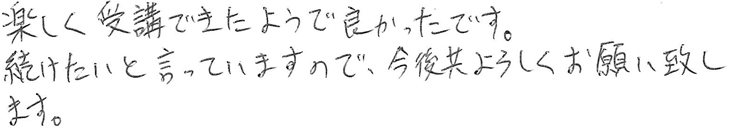 楽しく受講できたようで良かったです。
続けたいと言っていますので、今後共よろしくお願い致し
ます。